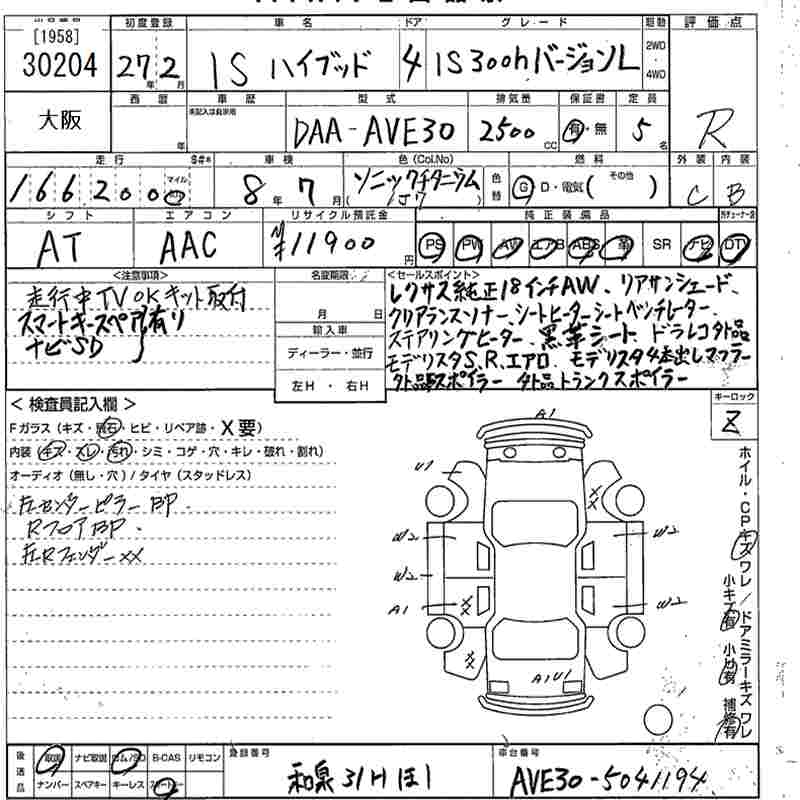 初度登録 車名 ドア グレード 駆動 評価点
[1958]
30204 27年 2月 IS ハイブッド 4 IS300hバージョンL 2WD・4WD R
西暦 車歴 型式 排気量 保証書 定員
大阪 年 未記入は自家用 DAA-AVE30 2500cc 有・無 5名
走行 S#* 車検 色(Col.No) 色替 燃料 外装 内装
166200 マイル 8年 7月 ソニックチタニウム (J7 G D・電気( その他 ) C B
シフト エアコン リサイクル預託金 純正装備品
AT AAC ¥11900円 PS PW AW エアB ABS 革 SR ナビ DTV
<注意事項> 名変期限 <セールスポイント>
走行中TVOKキット取付
スマートキースペア有り
ナビSD
月 日
輸入車
ディーラー・並行
左H・右H
レクサス純正18インチAW、リアサンシェード、
クリアランスソナー、シートヒーターシートベンチレーター
ステアリングヒーター、黒革シート、ドラレコ外品
モデリスタS,R,エアロ、モデリスタ4本出しマフラー
外品スポイラー 外品トランクスポイラー
キーロック
Z
<検査員記入欄>
Fガラス(キズ・飛石・ヒビ・リペア跡・X要)
内装(キズ・スレ・汚れ・シミ・コゲ・穴・キレ・破れ・割れ)
オーディオ(無し・穴)/タイヤ(スタッドレス)
左センターピラーBP.
RフロアBP.
左Rフェンダーxx
A1
U1
xx
W2 W2
W2
A1 xx W2
xx
A1U1
ホイル・CPキズ ワレ/ドアミラーキズ ワレ
小キズ有 小凹有 補修有
後送品 取説 ナビ取説 ROM/SD B-CAS リモコン 登録番号 車台番号
ナンバー スペアキー キーレス 和泉31Hほ1 AVE30-5041194